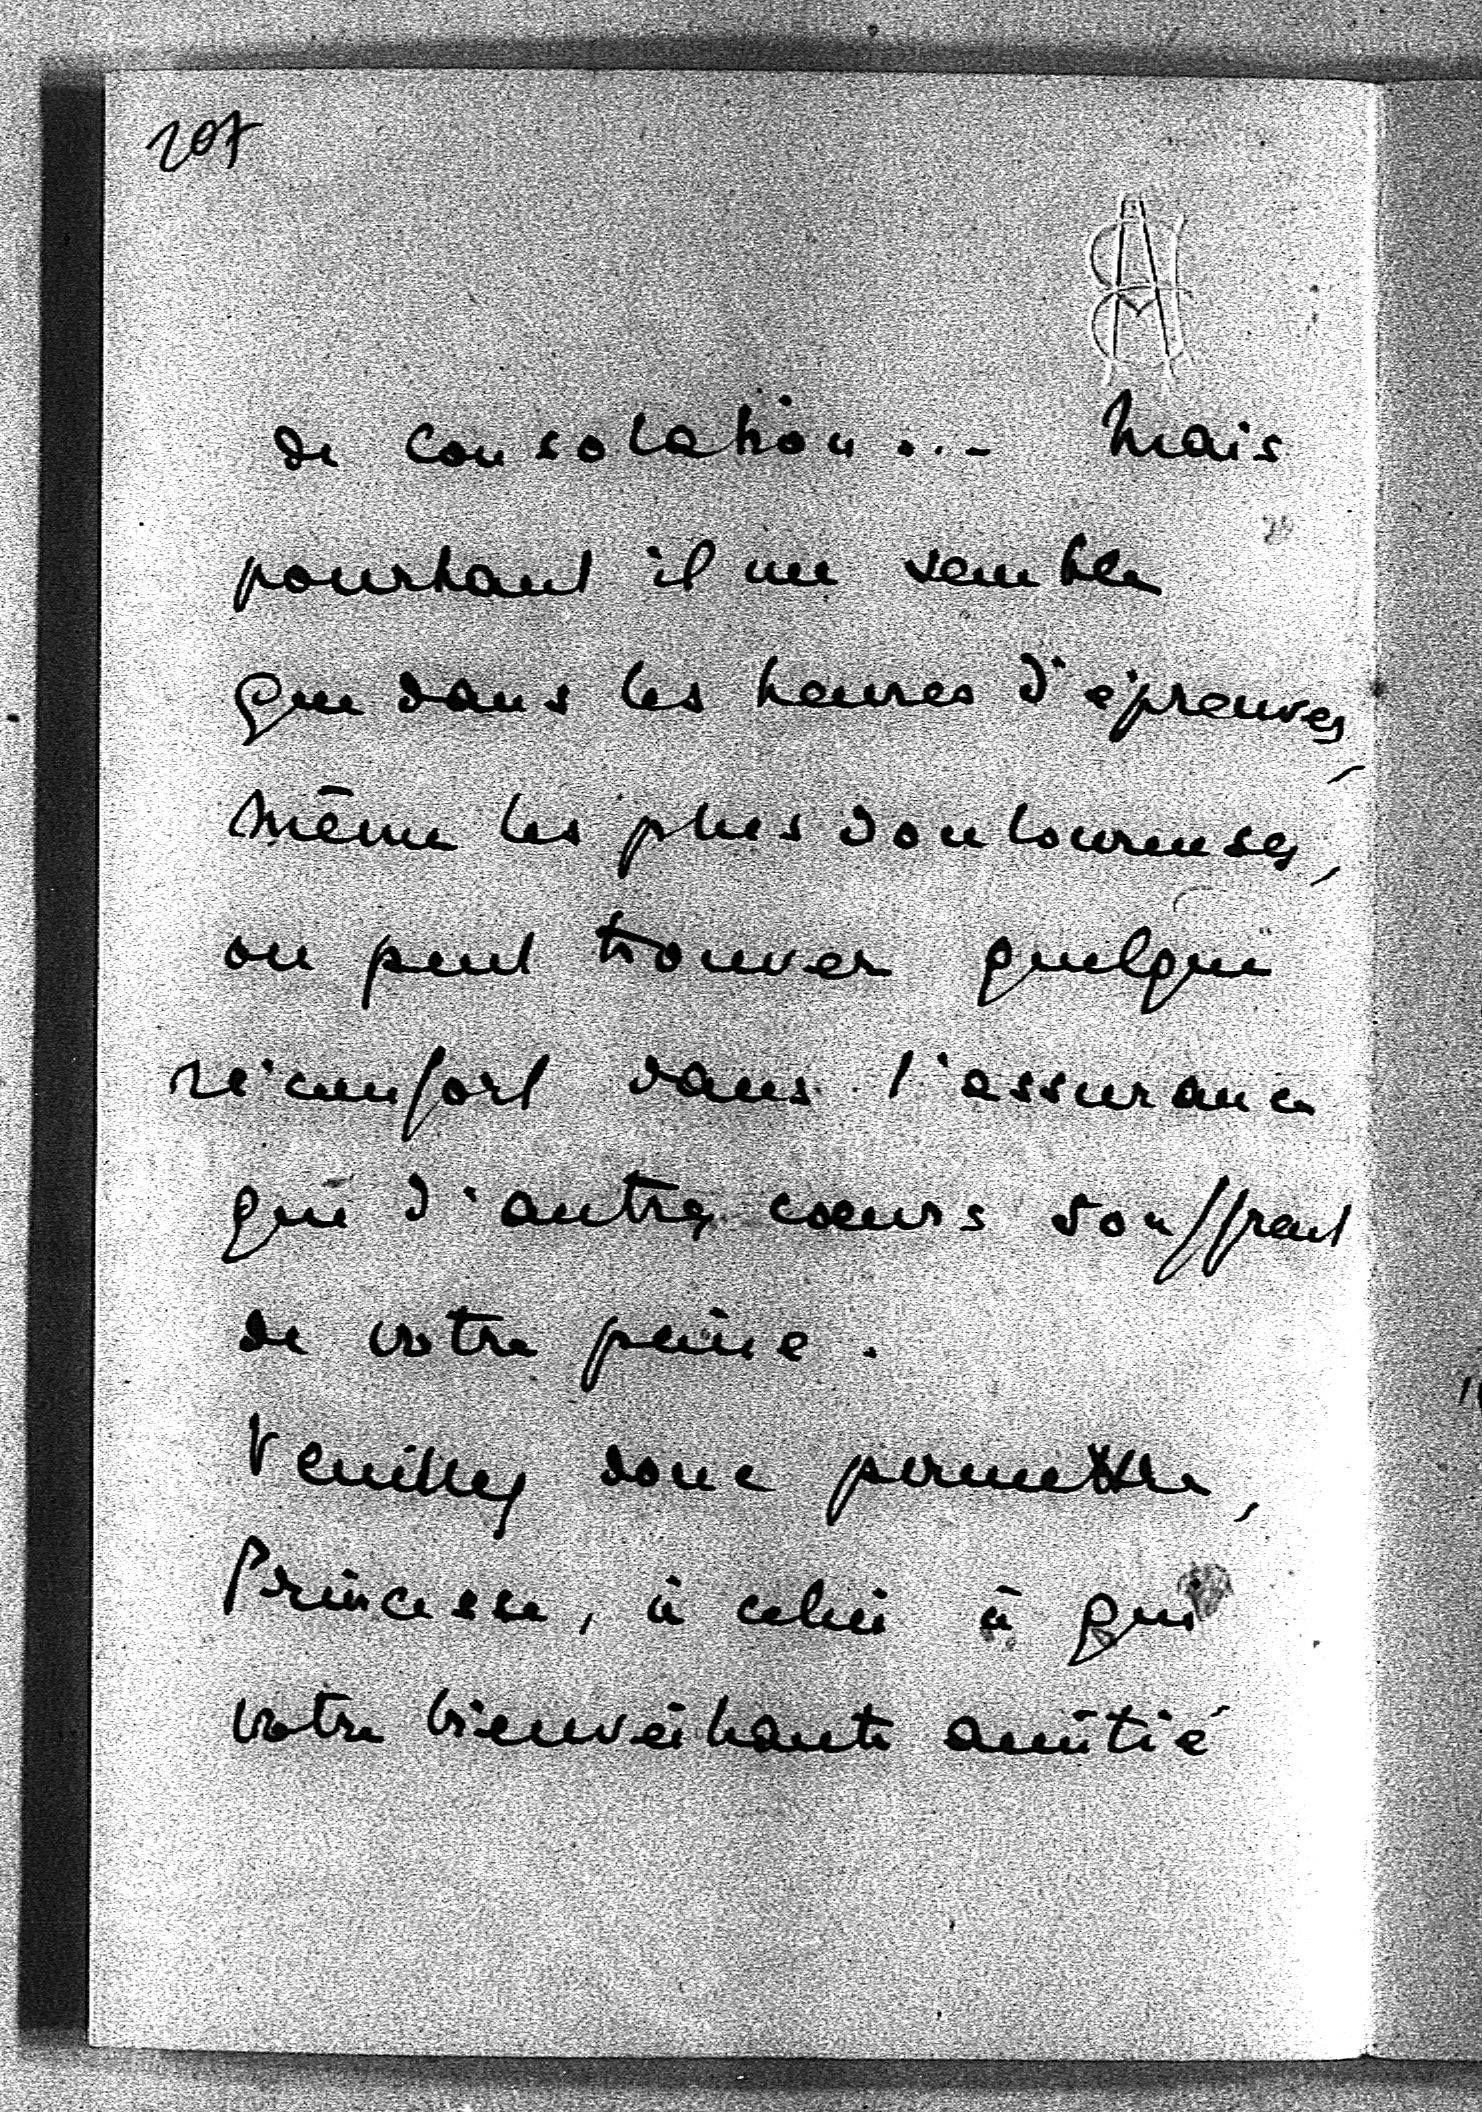 207
de consolation... Mais
pourtant il me semble
que dans les heures d'épreuves,
même les plus douloureuses,
on peut trouver quelque
réconfort dans l'assurance
que d'autres cœurs souffrent
de votre peine.
Veuillez donc permettre,
Princesse, à celui à qui
votre bienveillante amitié